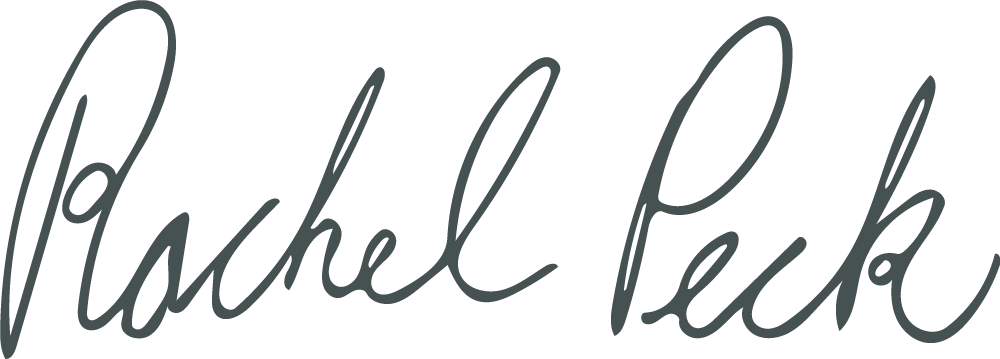 Rachel Peck